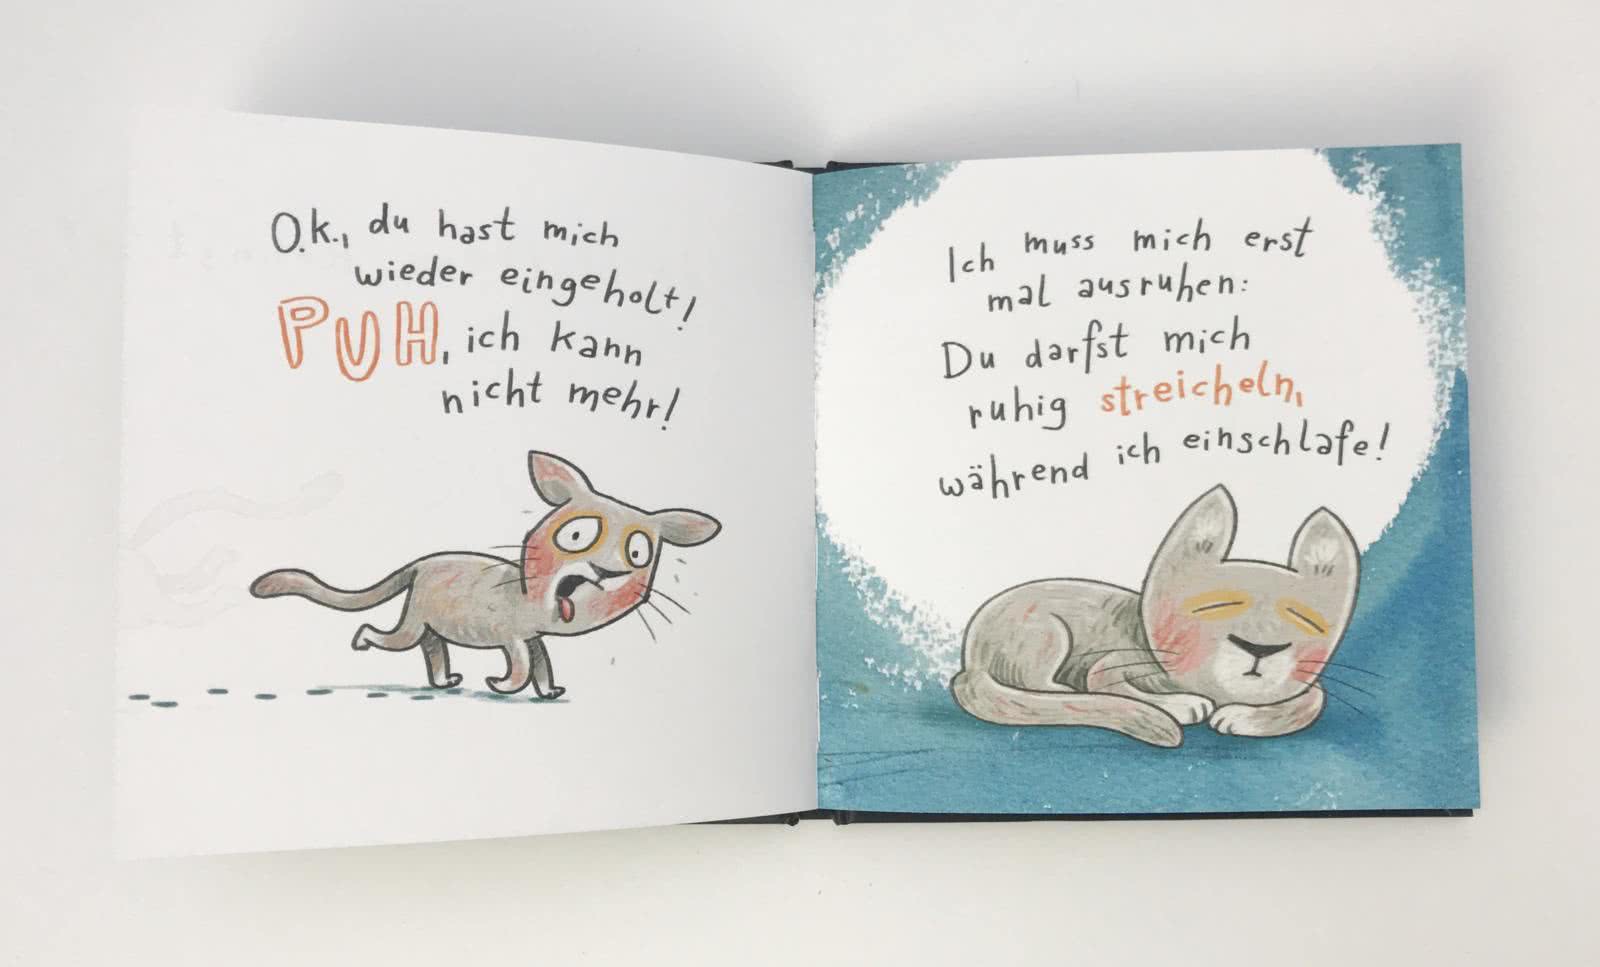 O.k., du hast mich
wieder eingeholt!
PUH, ich kann
nicht mehr!
Ich muss mich erst
mal ausruhen:
Du darfst mich
ruhig streicheln,
während ich einschlafe!